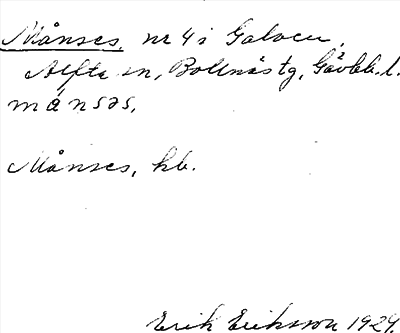 Månses, nr 4 i Galven,
Alfta sn, Bollnäs tg, Gävleb. l.
månsəs,
Månses, hb.
Erik Eriksson 1929.